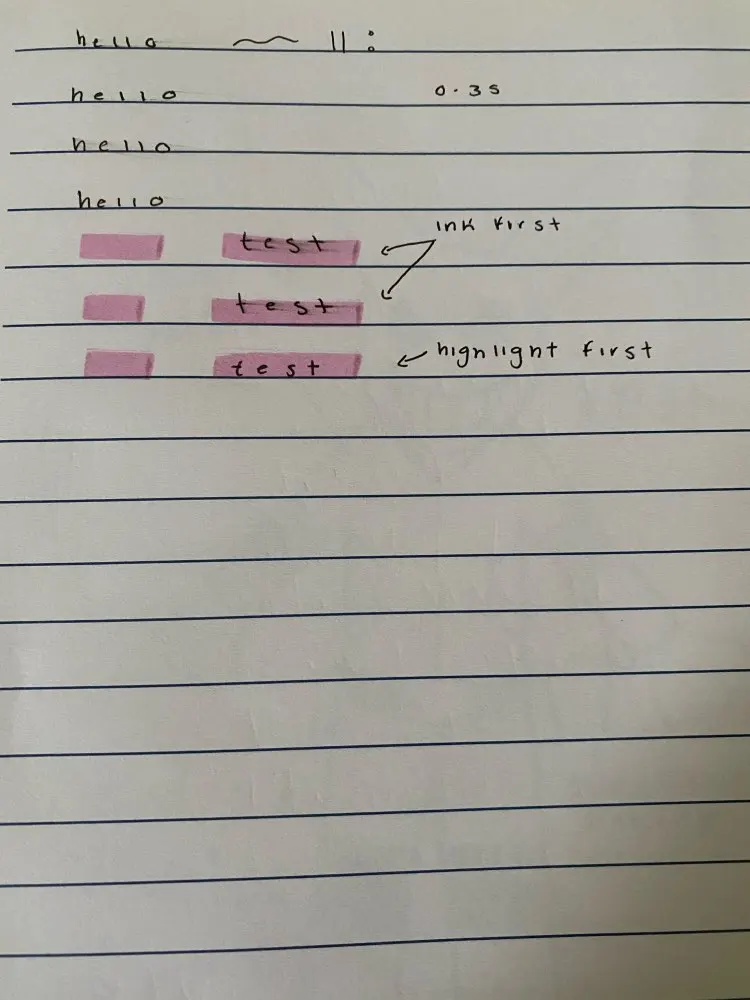 hello
hello 0.35
hello
hello
test ink first
test
test highlight first